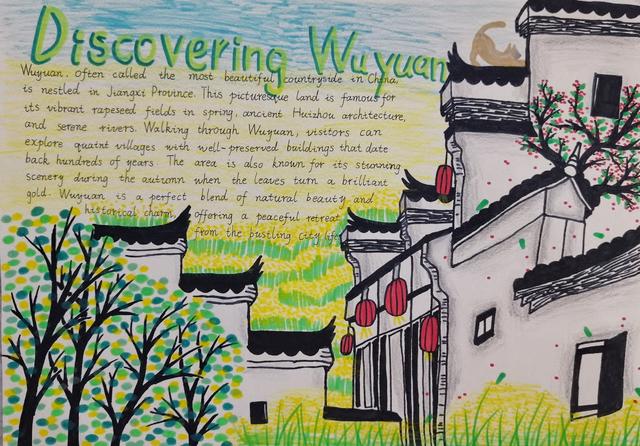 Discovering Wuyuan
Wuyuan, often called the most beautiful countryside in China,
is nestled in Jiangxi Province. This picturesque land is famous for
its vibrant rapeseed fields in spring, ancient Huizhou architecture,
and serene rivers. Walking through Wuyuan, visitors can
explore quaint villages with well-preserved buildings that date
back hundreds of years. The area is also known for its stunning
scenery during the autumn when the leaves turn a brilliant
gold. Wuyuan is a perfect blend of natural beauty and
historical charm, offering a peaceful retreat
from the bustling city life.